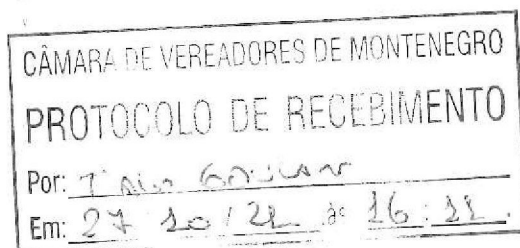 CÂMARA DE VEREADORES DE MONTENEGRO
PROTOCOLO DE RECEBIMENTO
Por:
Em: 27 10 / 21 às 16: